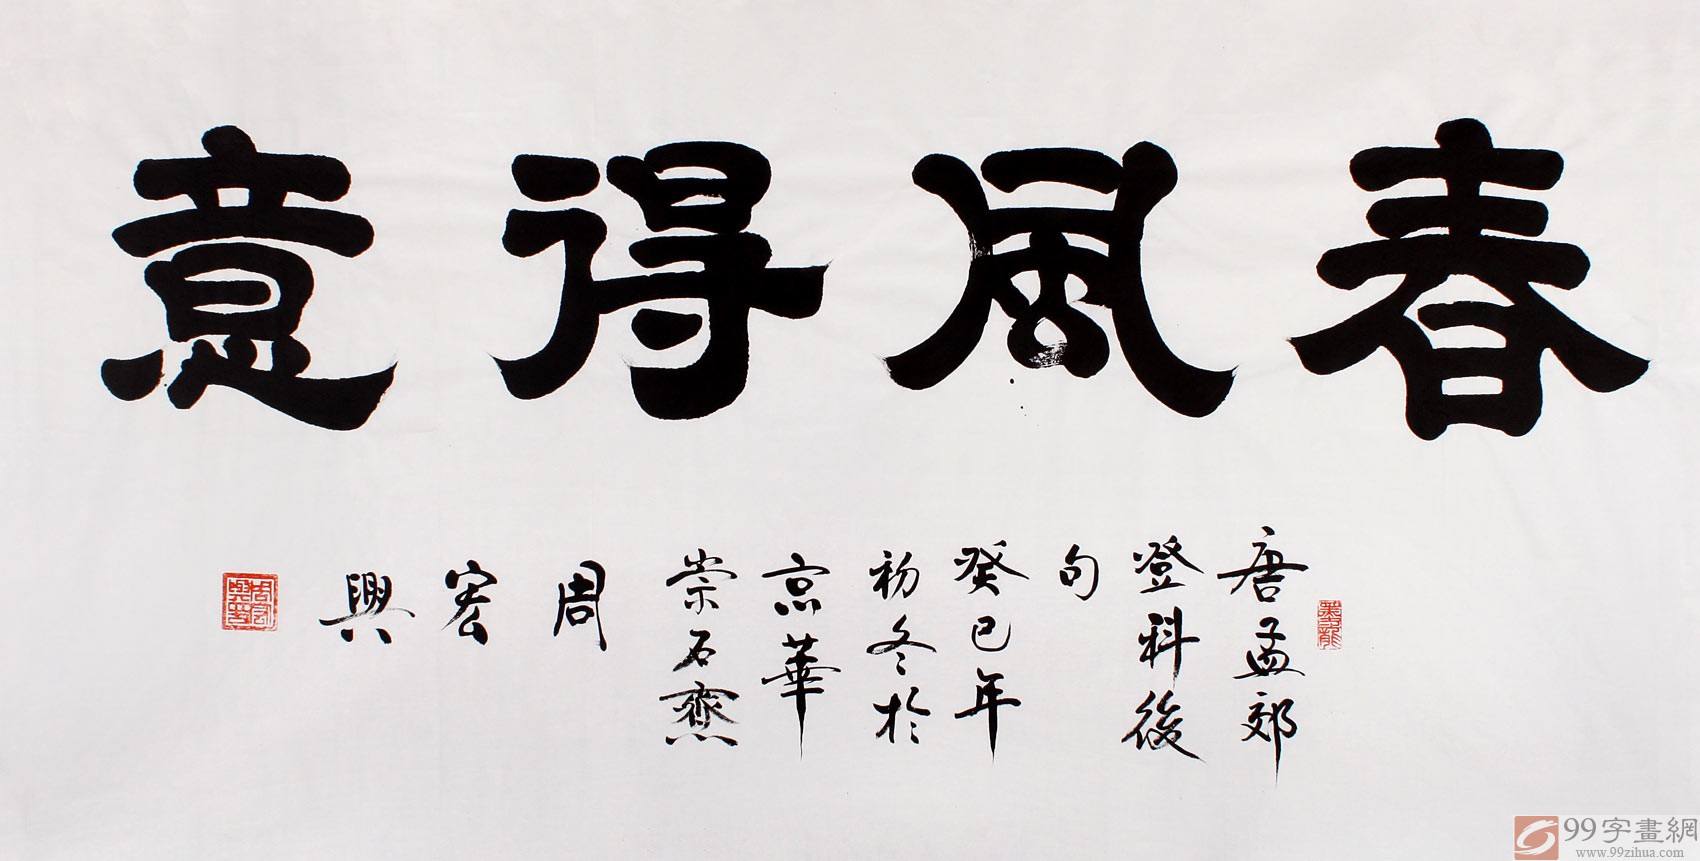 春風得意
唐孟郊
登科後
句
癸巳年
初冬於
京華
崇石齋
周
宏
興
99字畫網
www.99zihua.com